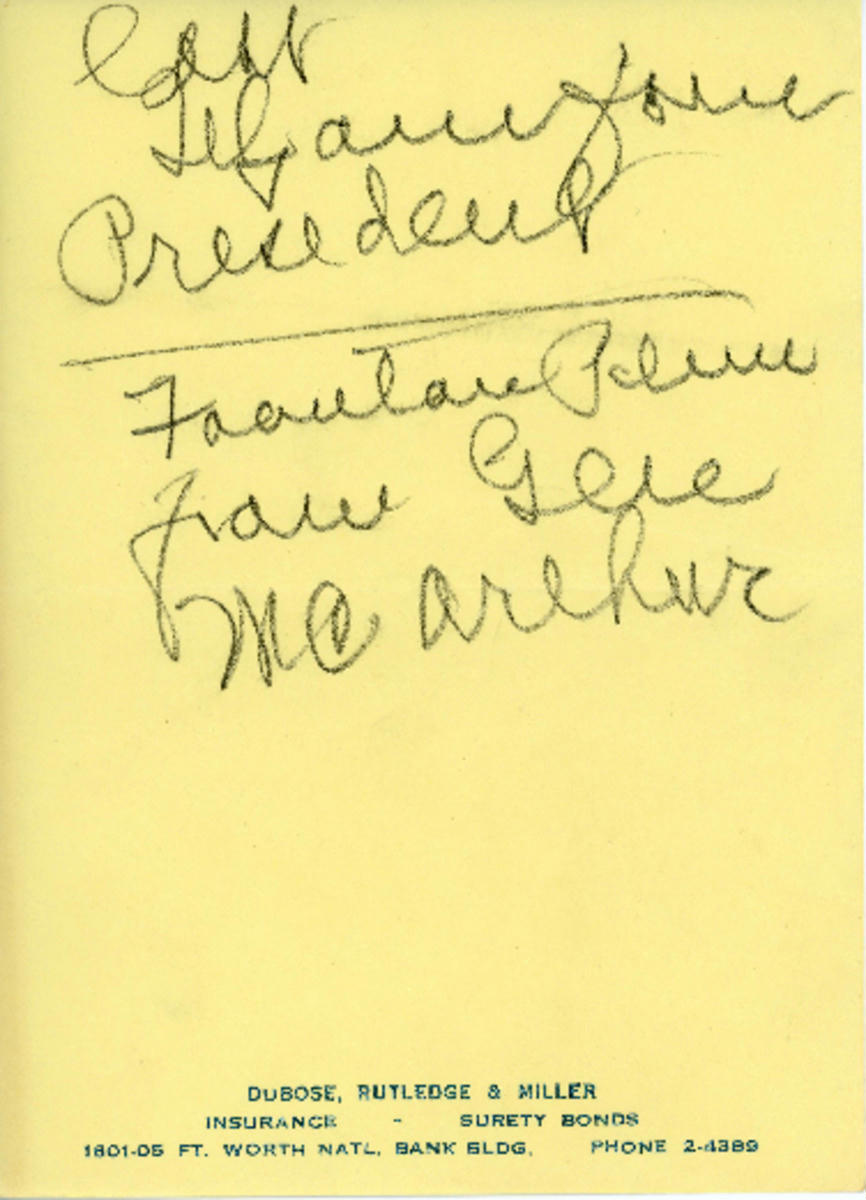 President
Fountain Penn
from Gene
McArthur
DUBOSE, RUTLEDGE & MILLER
INSURANCE - SURETY BONDS
1601-05 FT. WORTH NATL. BANK BLDG. PHONE 2-4389